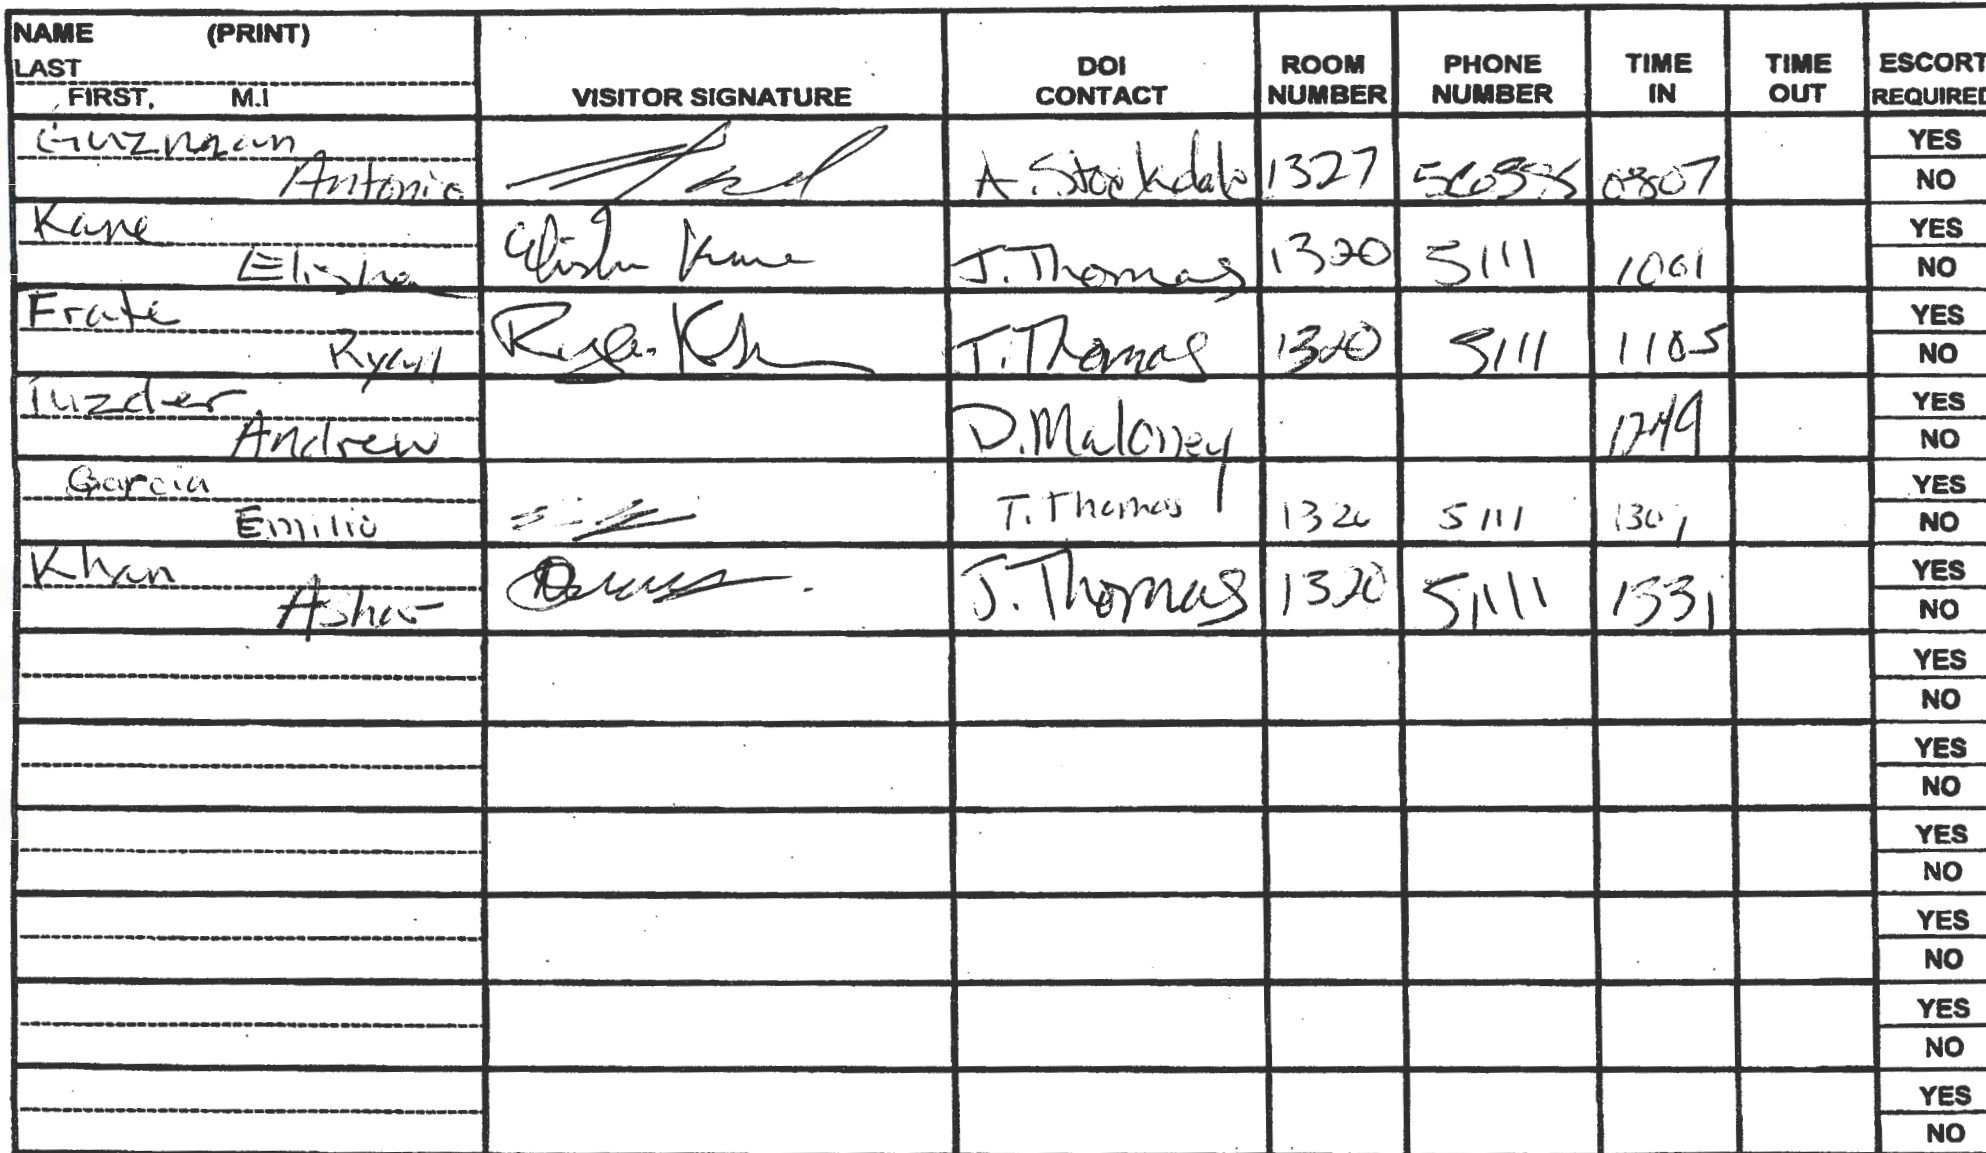 NAME (PRINT)
LAST
FIRST, M.I
VISITOR SIGNATURE
DOI CONTACT
ROOM NUMBER
PHONE NUMBER
TIME IN
TIME OUT
ESCORT REQUIRED
Guzman
Antonio
A. Stockdale 1327 0807
YES
NO
Kane
Elisha
Elisha Kane J. Thomas 1320 5111 1001
YES
NO
Frate
Ryan
T. Thomas 1320 5111 1105
YES
NO
Andrew
D. Maloney 1249
YES
NO
Garcia
Emilio
T. Thomas 1320 5111 1301
YES
NO
Khan
Ashar
J. Thomas 1320 5111 1331
YES
NO
YES
NO
YES
NO
YES
NO
YES
NO
YES
NO
YES
NO